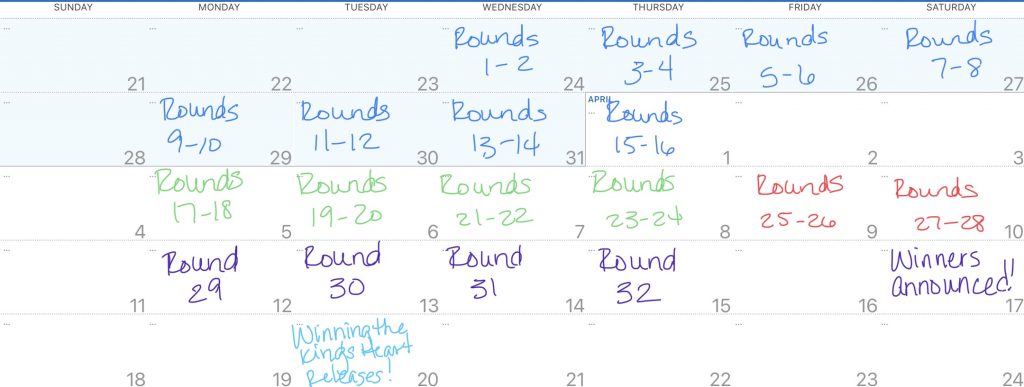 SUNDAY MONDAY TUESDAY WEDNESDAY THURSDAY FRIDAY SATURDAY
Rounds Rounds Rounds Rounds
1-2 3-4 5-6 7-8
21 22 23 24 25 26 27
APRIL
Rounds Rounds Rounds Rounds
9-10 11-12 13-14 15-16
28 29 30 31 1 2 3
Rounds Rounds Rounds Rounds Rounds Rounds
17-18 19-20 21-22 23-24 25-26 27-28
4 5 6 7 8 9 10
Round Round Round Round Winners
29 30 31 32 announced!!
11 12 13 14 15 16 17
Winning the
Kings Heart
Releases!
18 19 20 21 22 23 24